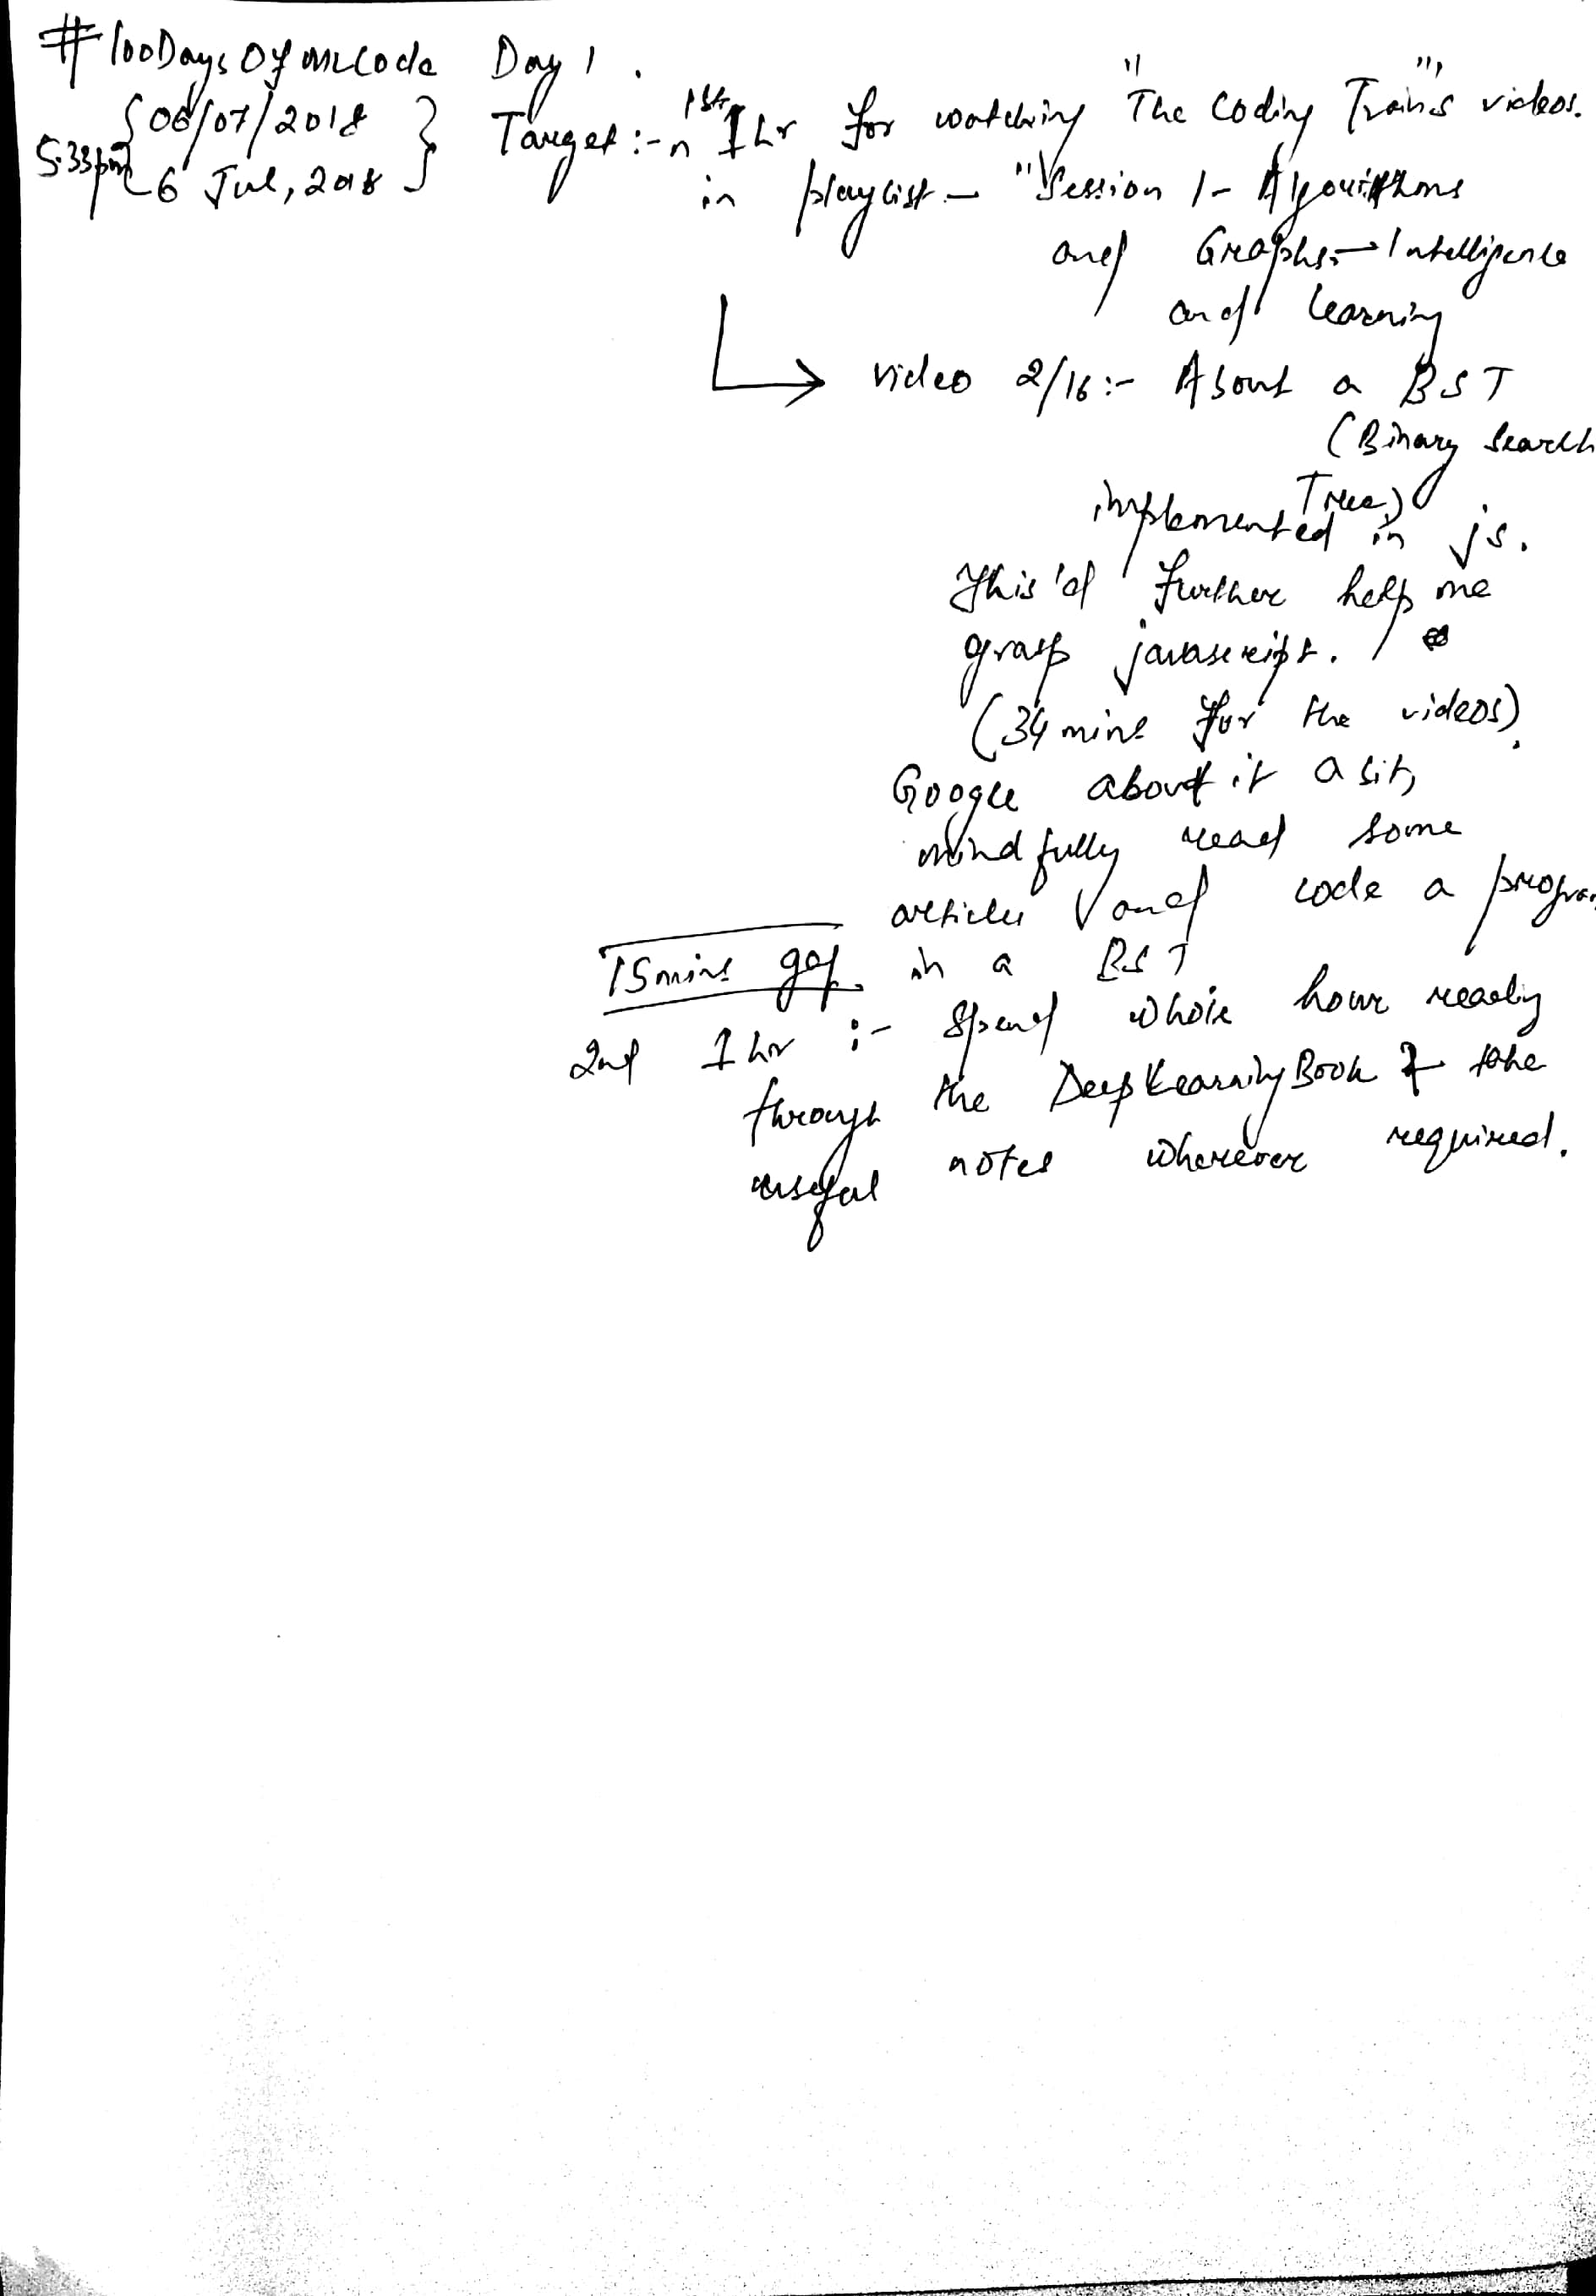 #100DaysOfMLCode Day 1.
{06/07/2018}
5:33pm {6 Jul, 2018}
Target :- 1st 1hr for watching "The Coding Train"'s videos.
in playlist - "Session 1 - Algorithms
and Graphs - Intelligence
and learning
video 2/16 :- About a BST
(Binary Search
Tree)
implemented in js.
This'd further help me
grasp javascript.
(34 mins for the videos).
Google about it a bit,
mindfully read some
articles and code a program
in a BST
15 mins gap.
2nd 1 hr :- Spend whole hour reading
through the DeepLearningBook & take
useful notes wherever required.